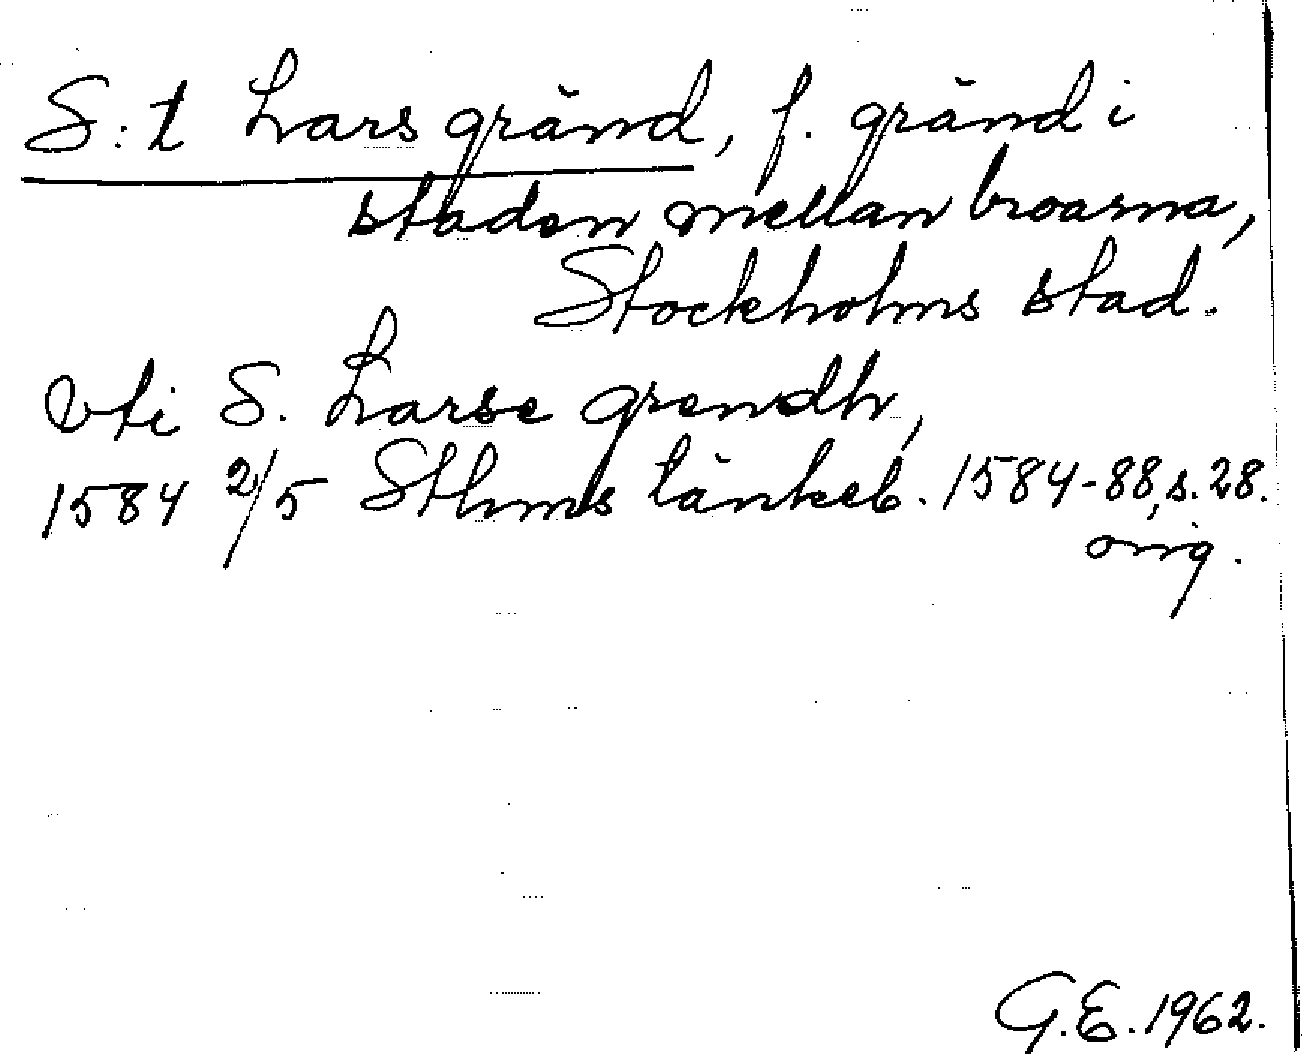 S:t Lars gränd, f. gränd i
staden mellan broarna,
Stockholms stad.
vti S. Larse grendh,
1584 2/5 Sthms tänkeb. 1584-88, s. 28.
orig.
G.E. 1962.